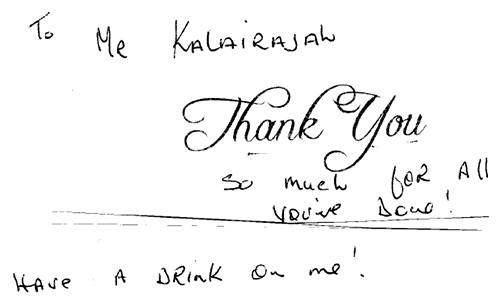 To Mr KALAIRAJAH
Thank You
So much for All
You've Done!
HAVE A DRINK on me!